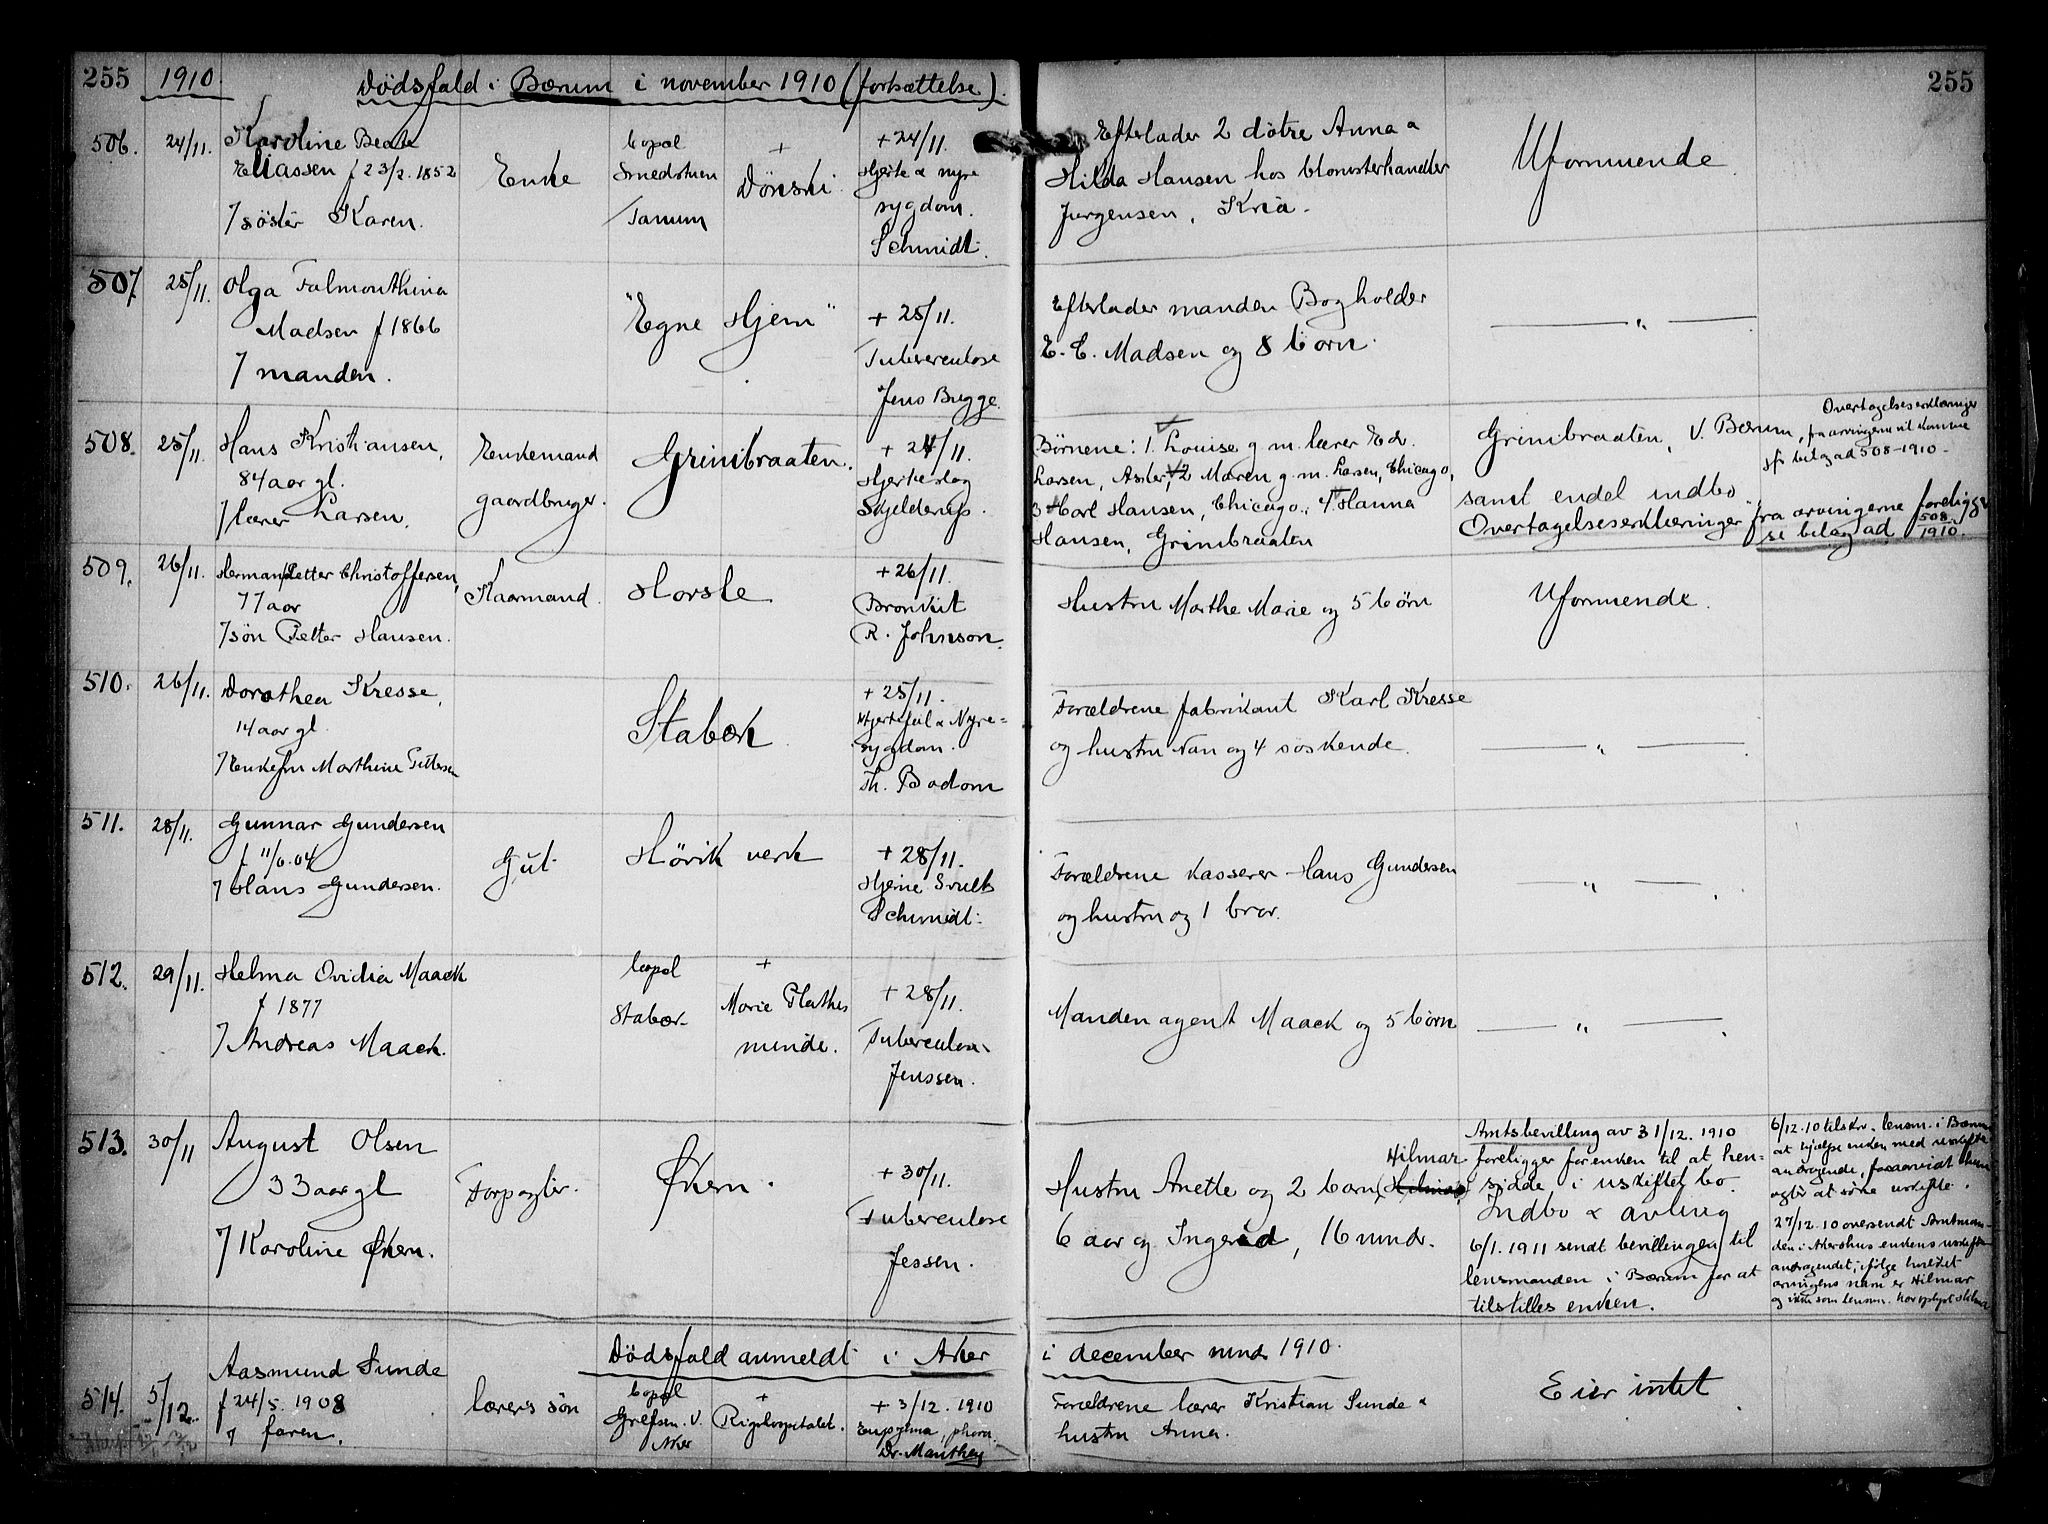 255 1910 Dödsfald i Bærum i november 1910 (fortsættelse). 255
506. 24/11. Karoline Beate
Eliassen f 23/2. 1852
7 søster Karen.
Enke
bopæl
Smedstuen
Tanum
+
Dønski.
+ 24/11.
Hjerte & nyre
sygdom.
Schmidt.
Efterlader 2 døtre Anna &
Hilda Hansen hos blomsterhandler
Jurgensen, Kria.
Uformuende
507. 25/11. Olga Falmouthina
Madsen f 1866
7 manden.
"Egne Hjem"
+ 25/11.
Tuberculose
Jens Bugge.
Efterlader manden Bogholder
E. C. Madsen og 8 børn.
— " —
508. 25/11. Hans Kristiansen,
84 aar gl.
7 lærer Larsen.
Enkemand
gaardbruger.
Grinibraaten.
+ 24/11.
Hjerteslag
Skjelderup.
Børnene: 1. Louise g. m. lærer Edv.
Larsen, Asker, 2 Maren g. m. Larsen, Chicago,
3 Karl Hansen, Chicago, 4. Hanna
Hansen, Grinibraaten
Grinibraaten, V. Bærum,
samt endel indbo
Overtagelseserklæringer fra arvingerne foreligger
se bilag ad 508/1910.
Overtagelseserklæringer
fra arvingerne vil komme
jf. bilag ad 508-1910.
509. 26/11. Herman Petter Christoffersen,
77 aar
7 søn Petter Hansen.
Kaarmand.
Horsle
+ 26/11.
Bronkit
R. Johnson.
Hustru Marthe Marie og 5 børn
Uformuende.
510. 26/11. Dorothea Kresse,
14 aar gl.
7 Enkefru Marthine Pettersen
Stabæk
+ 25/11.
Hjertefeil & Nyre=
sygdom.
Th. Bodom
Forældrene fabrikant Karl Kresse
og hustru Nan og 4 søskende.
— " —
511. 28/11. Gunnar Gundersen
f 11/6.04
7 Hans Gundersen.
Gut
Høvik verk
+ 28/11.
Hjerne Svulst
Schmidt.
Forældrene kasserer Hans Gundersen
og hustru og 1 bror.
— " —
512. 29/11. Helma Ovidia Maack
f 1877
7 Andreas Maack.
bopæl
Stabæk
+
Marie Plathes
minde.
+ 28/11.
Tuberculose
Jenssen.
Manden agent Maack og 5 børn
— " —
513. 30/11 August Olsen
33 aar gl
7 Karoline Økern.
Forpagter.
Økern.
+ 30/11.
Tuberculose
Jessen.
Hilmar
Hustru Anette og 2 børn,
6 aar og Ingrid, 16 mndr.
Amtsbevilling av 31/12. 1910
foreligger for enken til at hen-
sidde i uskiftet bo.
Indbo & avling
6/1. 1911 sendt bevillingen til
lensmanden i Bærum for at
tilstilles enken.
6/12.10 tilskr. lensm. i Bærum
at hjelpe enken med uskifte
andragende, forsaavidt hun
agter at søke uskifte.
27/12.10 oversendt Amtman-
den i Akershus enkens uskifte
andragendet; ifølge hvilket
arvingens navn er Hilmar
og ikke som lensm. har oplyst Helmar
Dödsfald anmeldt i Aker i december mnd 1910.
514. 5/12. Aasmund Sunde
f 24/5. 1908
7 faren.
lærers søn
bopæl
Grefsen. V.
Aker
+
Rigshospitalet.
+ 3/12. 1910
Empyema, thora.
Dr. Manthey
Forældrene lærer Kristian Sunde &
hustru Anna.
Eier intet